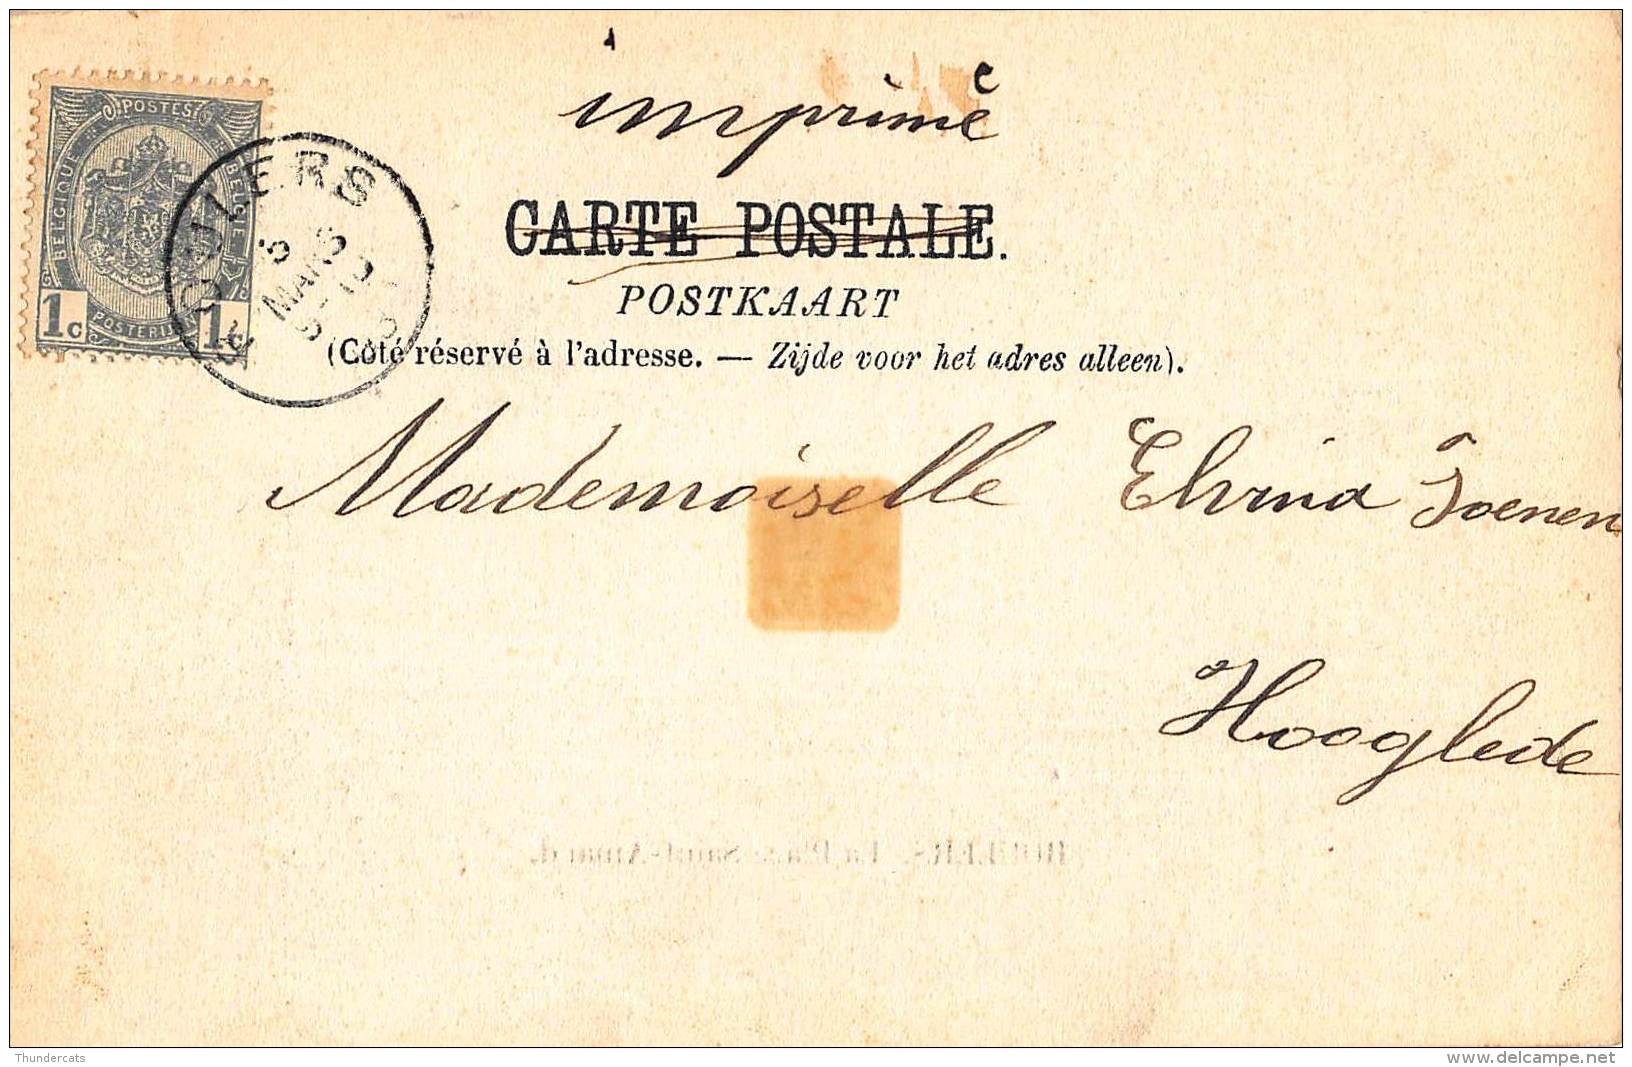 imprimé
POSTES
BELGIQUE
BELGIË
1c
POSTERIJEN
1c
ROULERS
MARS
CARTE POSTALE.
POSTKAART
(Côté réservé à l'adresse. — Zijde voor het adres alleen).
Mademoiselle Elvina Joenen
Hooglede
ROULERS. La Place Saint-Amand.
Thundercats
www.delcampe.net